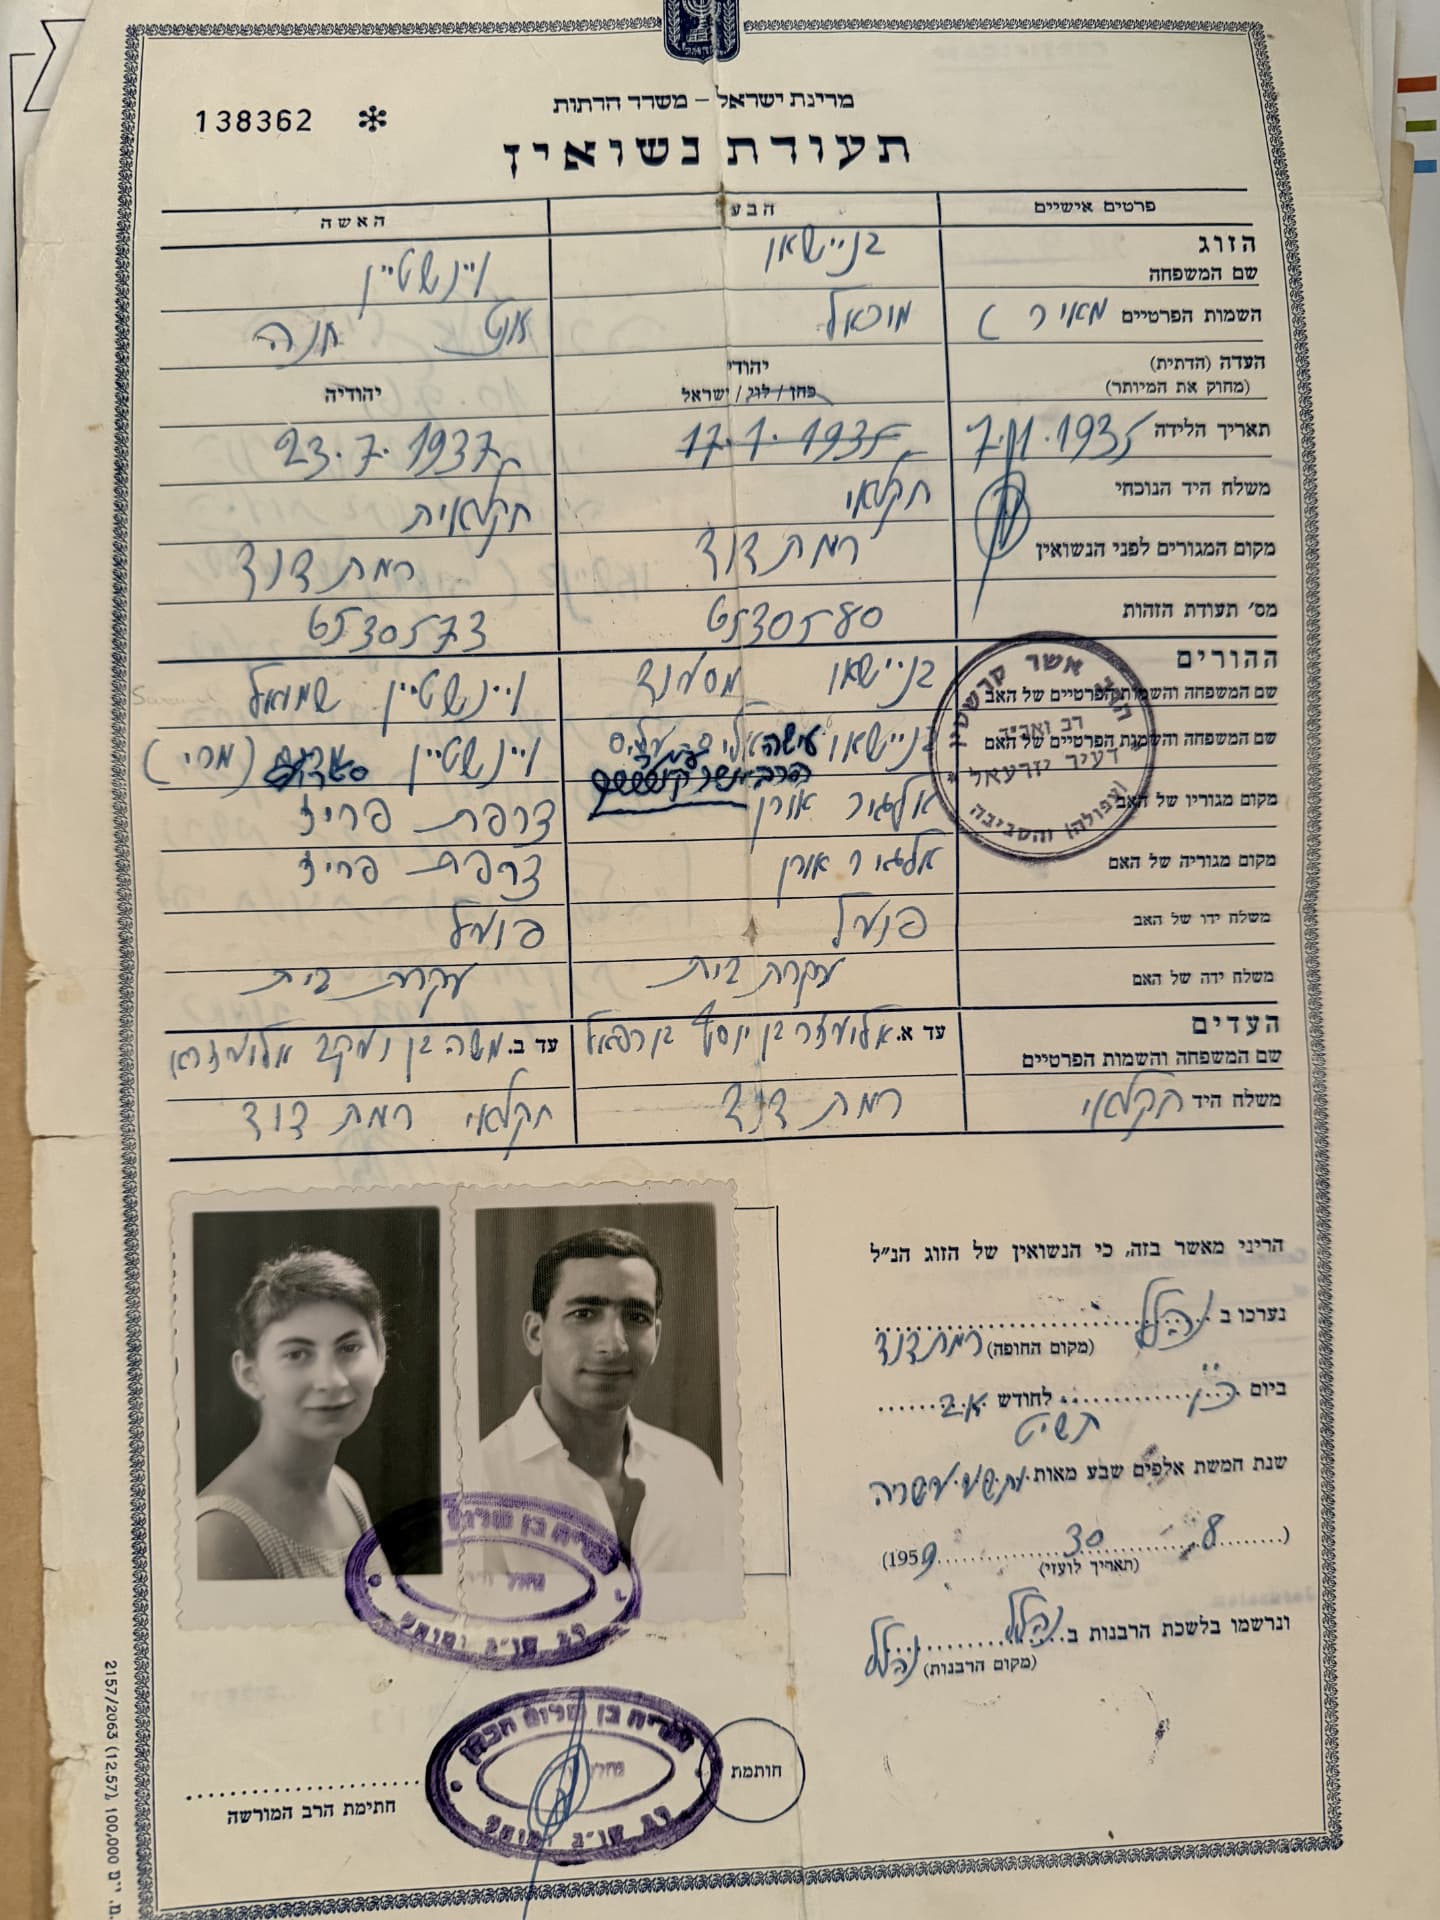 מדינת ישראל – משרד הדתות
138362 *
תעודת נשואין
פרטים אישיים הבעל האשה
הזוג
שם המשפחה בניישאן ויינשטיין
השמות הפרטיים (מאיר) מיכאל אנט חנה
העדה (הדתית) יהודי
(מחוק את המיותר) כהן / לוי / ישראל יהודיה
תאריך הלידה 7.11.1935 17.1.1935 23.7.1937
משלח היד הנוכחי חקלאי חקלאית
מקום המגורים לפני הנשואין רמת דוד רמת דוד
מס׳ תעודת הזהות 6530580 6530573
ההורים
שם המשפחה והשמות הפרטיים של האב בניישאן מסעוד ויינשטיין שמואל
שם המשפחה והשמות הפרטיים של האם בניישאן עישה ויינשטיין (מרי)
מקום מגוריו של האב אלג׳יר אורן צרפת פריז
מקום מגוריה של האם אלג׳יר אורן צרפת פריז
משלח ידו של האב פועל פועל
משלח ידה של האם עקרת בית עקרת בית
הרב אשר קרשטיין
רב ואב״ד
דעיר יזרעאל
(עפולה) והסביבה
העדים
שם המשפחה והשמות הפרטיים עד א. אליעזר בן יוסף עד ב. משה בן יעקב
משלח היד חקלאי רמת דוד חקלאי רמת דוד
הריני מאשר בזה, כי הנשואין של הזוג הנ״ל
נערכו ב נהלל
(מקום החופה) רמת דוד
ביום כ״ו לחודש אב
תשי״ט
שנת חמשת אלפים שבע מאות ותשע עשרה
(8 30 1959)
(תאריך לועזי)
ונרשמו בלשכת הרבנות ב נהלל
(מקום הרבנות) נהלל
חותמת
חתימת הרב המורשה
בן שלום הכהן
רב שו״ב ומוהל
2157/2063 (12.57), 100,000